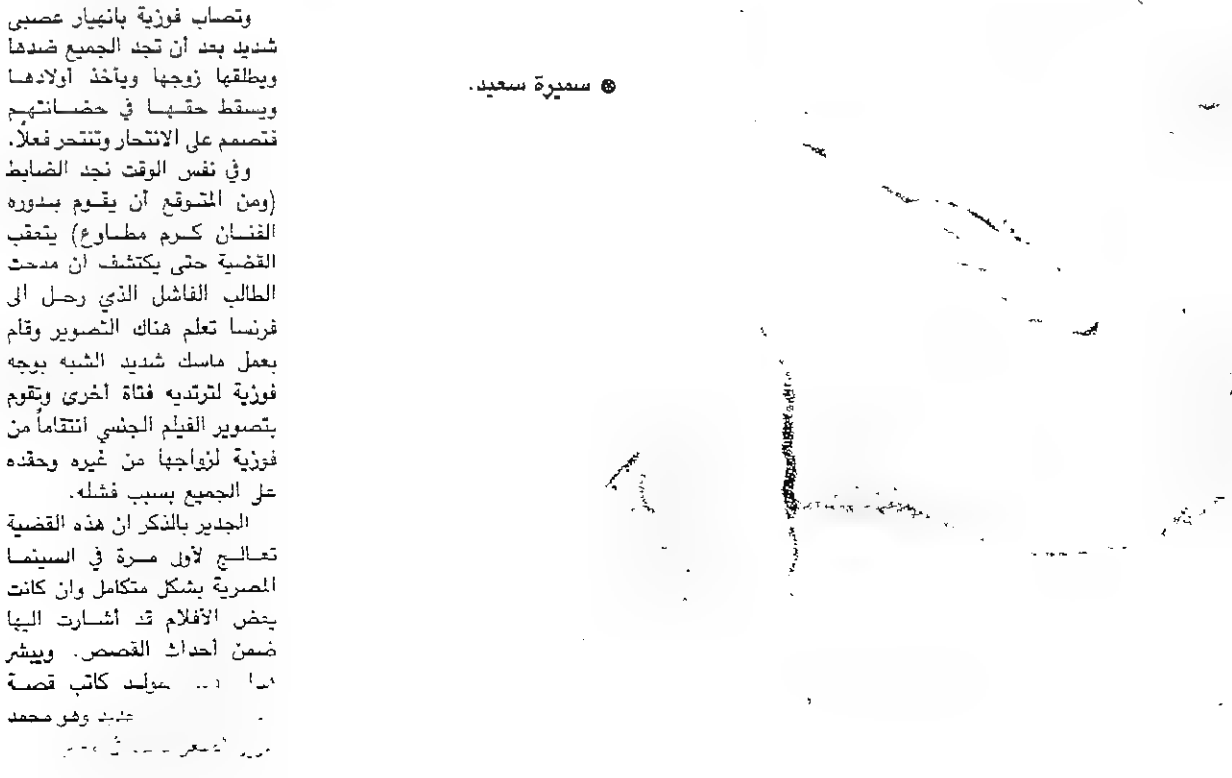 وتصاب فوزية بانهيار عصبي
شديد بعد أن تجد الجميع ضدها
ويطلقها زوجها ويأخذ أولادها
ويسقط حقها في حضانتهم
فتصمم على الانتحار وتنتحر فعلاً.
وفي نفس الوقت نجد الضابط
(ومن المتوقع أن يقوم بدوره
الفنان كرم مطاوع) يتعقب
القضية حتى يكتشف ان مدحت
الطالب الفاشل الذي رحل الى
فرنسا تعلم هناك التصوير وقام
بعمل ماسك شديد الشبه بوجه
فوزية لترتديه فتاة أخرى وتقوم
بتصوير الفيلم الجنسي انتقاماً من
فوزية لزواجها من غيره وحقده
على الجميع بسبب فشله.
الجدير بالذكر ان هذه القضية
تعالج لأول مرة في السينما
المصرية بشكل متكامل وان كانت
بعض الأفلام قد أشارت اليها
ضمن أحداث القصص. ويبشر
كاتب قصة
وهو محمد
سميرة سعيد.